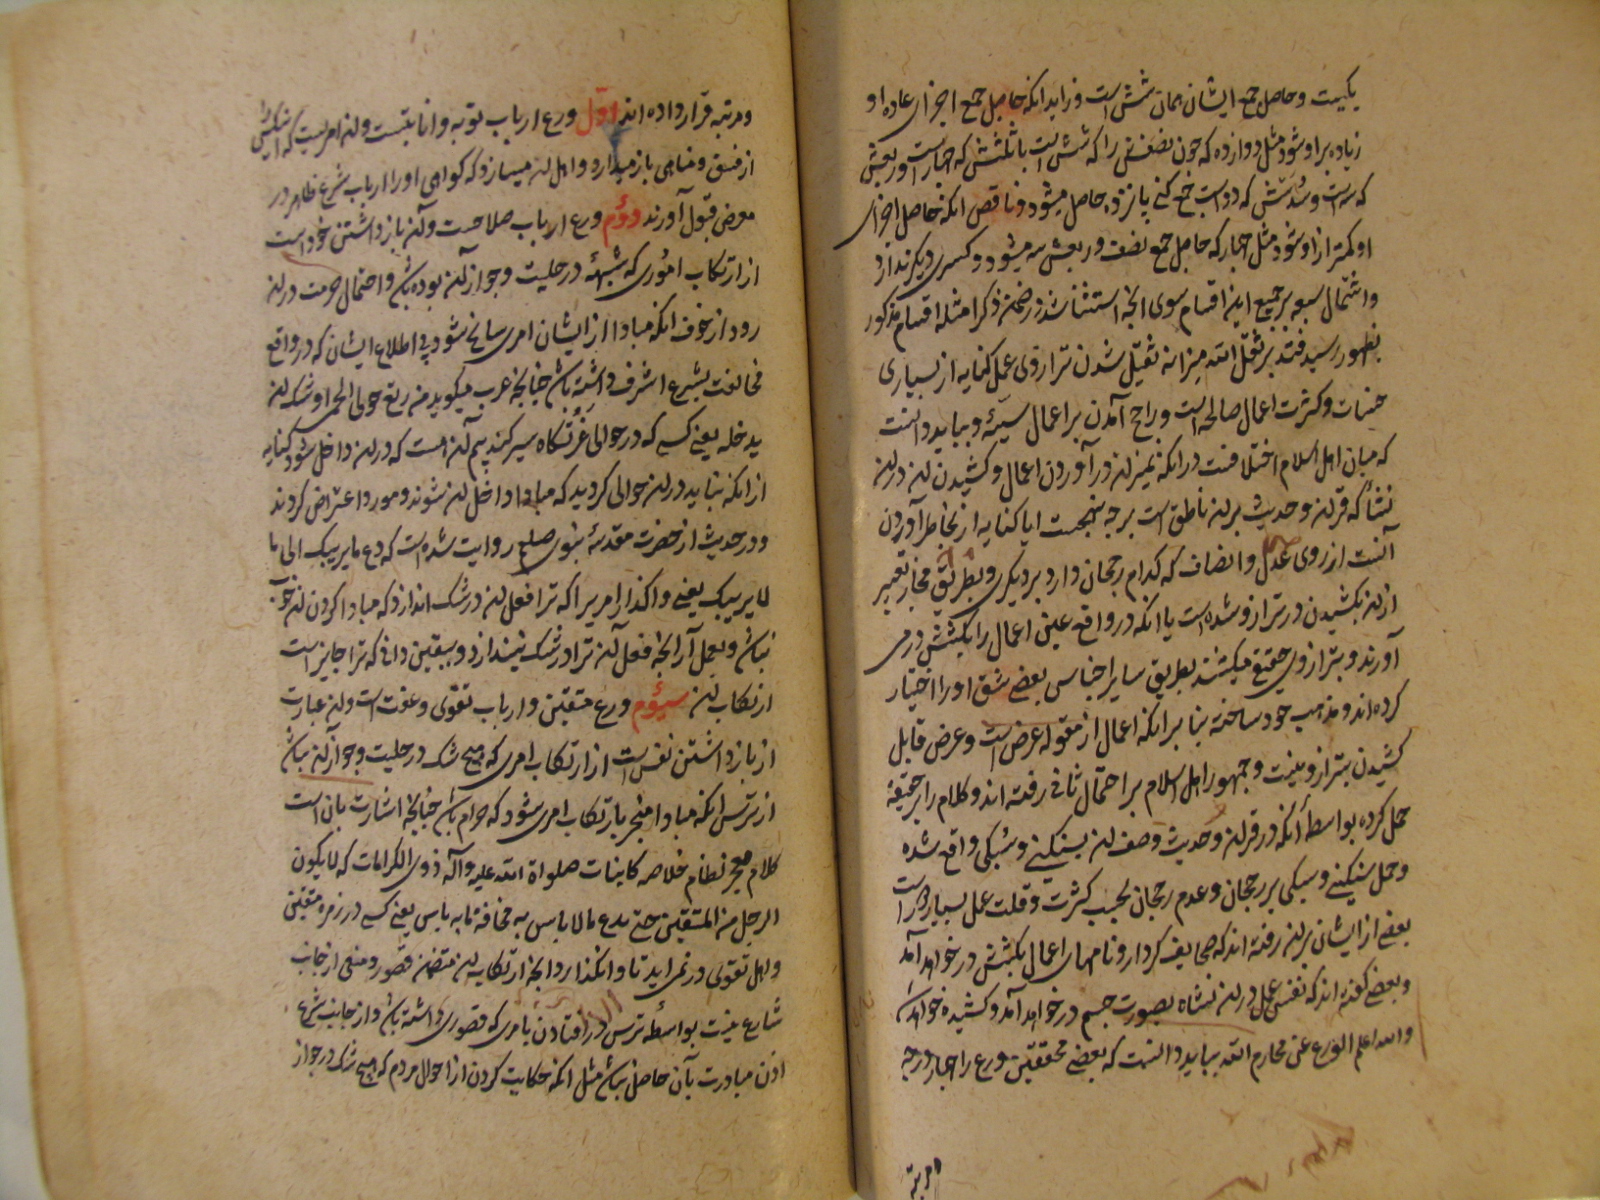 یکیست و حاصل جمع ایشان همان شش است و زاید انکه حاصل جمع اجزای عاده او
زیاده بر او شود مثل دوازده که چون نصفش را که شش است با ثلثش که چهار است و ربعش
که سه است و سدسش که دو است جمع کنی پانزده حاصل میشود و ناقص انکه حاصل اجزای
او کمتر از او شود مثل چهار که حاصل جمع نصف و ربعش سه میشود و کسری دیگر ندارد
و اشتمال سبعه بر جمیع این اقسام سوی انچه استثنا شد در ضمن ذکر امثله اقسام مذکور
بظهور رسید فقد بر ثقل الله میزانه ثقیل شدن ترازوی عمل کنایه از بسیاری
حسنات و کثرت اعمال صالحه است و راجح آمدن بر اعمال سیئه و بباید دانست
که میان اهل اسلام اختلافست در انکه بمیزان در آوردن اعمال و کشیدن ان در ان
نشأ که قران و حدیث بران ناطق است بر چه نهجست ایا کنایه از بخاطر آوردن
آنست از روی عدل و انصاف که کدام رجحان دارد بر دیگری و بطریق مجاز تعبیر
از ان بکشیدن در ترازو شده است یا انکه در واقع عین اعمال را بکشش در می
آورند و بترازوی حقیقی میکشند بطریق سایر اجناس بعضی شق اورا اختیار
کرده اند و مذهب خود ساخته بنا بر انکه اعمال از مقوله عرض است و عرض قابل
کشیدن بترازو نیست و جمهور اهل اسلام بر احتمال ثانی رفته اند و کلام را بر حقیقة
حمل کرده بواسطه انکه در قران و حدیث وصف ان بسنکینی و سبکی واقع شده
و حمل سنکینی و سبکی بر رجحان و عدم رجحان بحسب کثرت و قلت عمل بسیار دور است
بعضی از ایشان بران رفته اند که صحایف کردار و نامهای اعمال بکشش در خواهد آمد
و بعضی گفته اند که نفس عمل در ان نشاه بصورت جسم در خواهد آمد و کشیده خواهد شد
و الله اعلم الورع عن محارم الله بباید دانست که بعضی محققین ورع را چهار درجه
و مرتبه
و مرتبه قرار داده اند اول ورع ارباب توبه و انابتست و ان امریست که اشکس را
از فسق و مناهی باز میدارد و اهل ان میسازد که کواهی اورا ارباب شرع ظاهر در
معرض قبول آورند دوم ورع ارباب صلاحست و آن باز داشتن خود است
از ارتکاب اموری که شبهۀ در حلیت و جواز ان بوده باشد و احتمال حرمت در ان
رود از خوف انکه مبادا از ایشان امری سانح شود بی اطلاع ایشان که در واقع
مخالفت بشرع اشرف داشته باشد چنانچه عرب میکوید من رتع حول الحمی اوشک ان
یدخله یعنی کسی که در حوالی غرقگاه سیر کند بیم آن هست که در ان داخل شود کنایه
از انکه نباید در ان حوالی کردید که مبادا داخل ان شوند و مورد اعتراض کردند
و در حدیث از حضرت مقدسۀ نبوی صلعم روایت شده است که دع ما یریبک الی ما
لا یریبک یعنی واکذار امریرا که ترا فعل ان در شک اندازد که مبادا کردن ان خوب
نباشد و بعمل آر انچه فعل آن ترا در شک نیندازد و بیقین دانی که ترا جایز است
ارتکاب ان سیوم ورع متقین و ارباب تقوی و عفت است و ان عبارت
از باز داشتن نفس است از ارتکاب امری که هیچ شک در حلیت و جواز ان نباشد
از ترس انکه مبادا منجر بارتکاب امری شود که حرام باشد چنانچه اشارت بان است
کلام معجز نظام خلاصه کاینات صلواة الله علیه و آله ذوی الکرامات که لا یکون
الرجل من المتقین حتی یدع ما لا باس به مخافة ما به باس یعنی کسی در زمره متقین
و اهل تقوی در نمی اید تا وانکذارد انچه ارتکاب ان متضمن قصور و منعی از جانب
شارع نیست بواسطۀ ترس در افتادن بامری که قصوری داشته باشد و از جانب شرع
اذن مبادرت بآن حاصل نباشد مثل انکه حکایت کردن از احوال مردم که هیچ شک در جواز